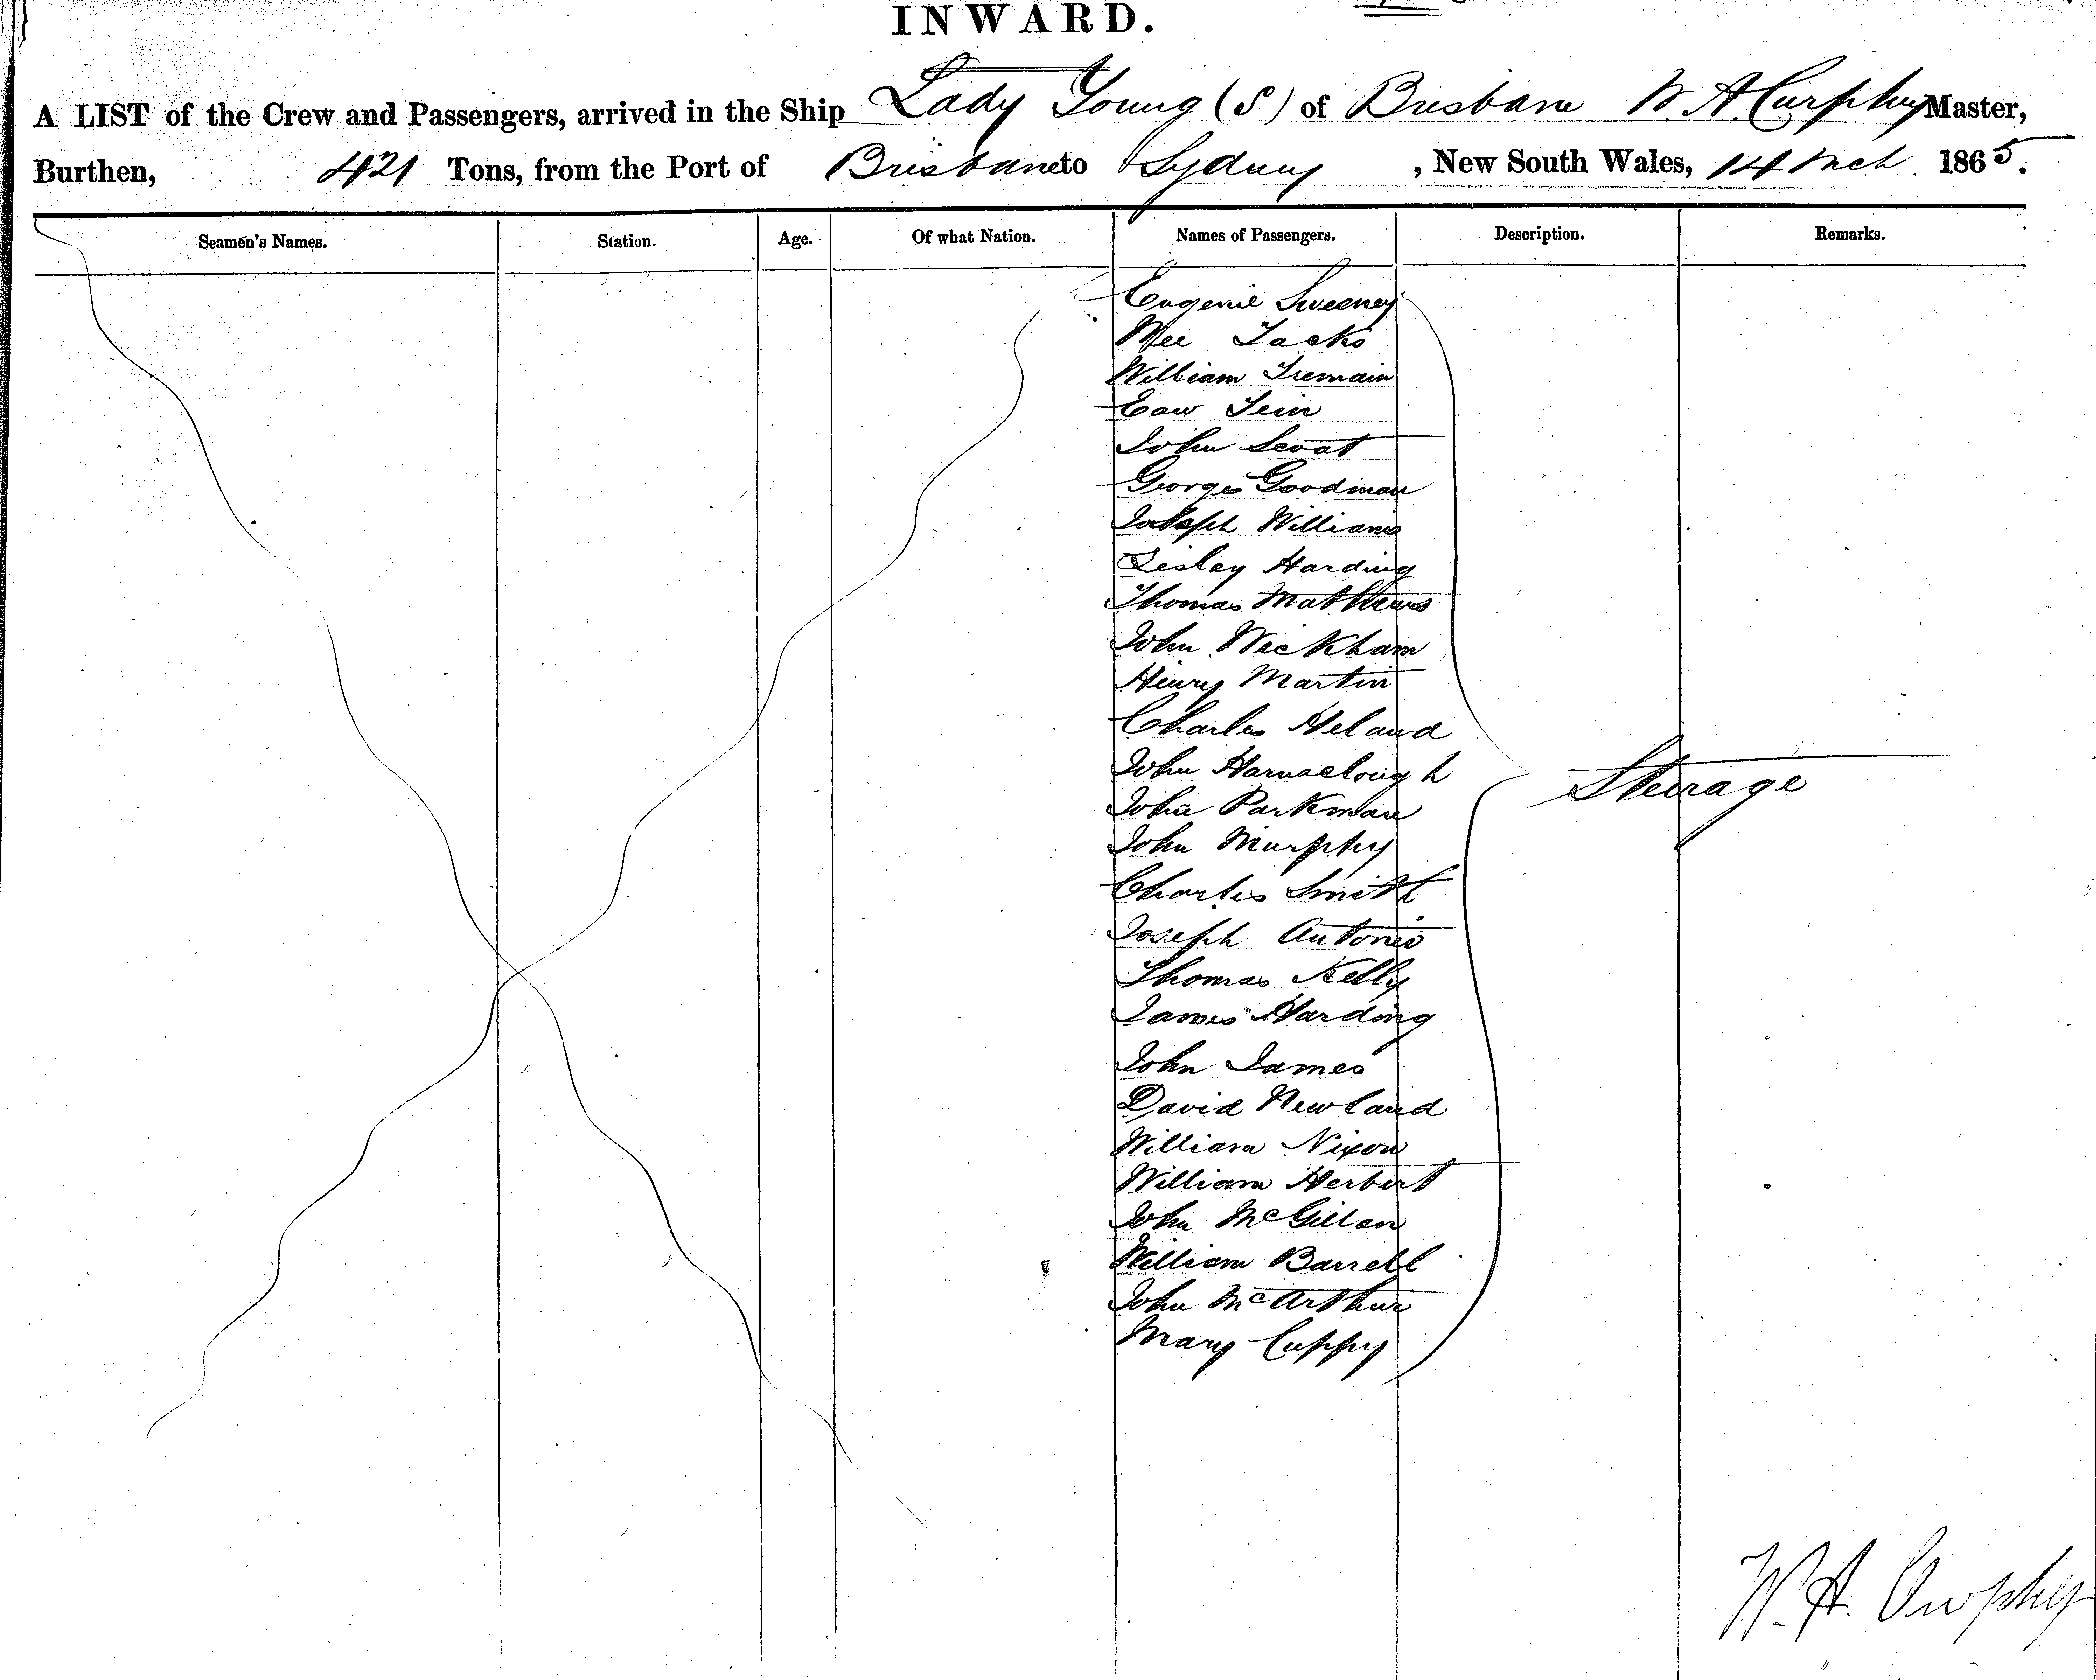 INWARD.
A LIST of the Crew and Passengers, arrived in the Ship Lady Young (S) of Brisbane W. A. Curphey Master,
Burthen, 421 Tons, from the Port of Brisbane to Sydney, New South Wales, 14 Mch 1865.
Seamen's Names. Station. Age. Of what Nation. Names of Passengers. Description. Remarks.
Eugenie Sweeney
Mee Jacks
William Tremain
John
George Goodman
Joseph Williams
Lesley Harding
Thomas Mathews
John Wickham
Henry Martin
Charles Heland
John
John Parkman
John Murphy
Charles Smith
Joseph Antonio
Thomas Kelly
James Harding
John James
David Newland
William Nixon
William Herbert
John McGillan
William Barrell
John McArthur
Mary Cuppy
Steerage
W. A. Curphey